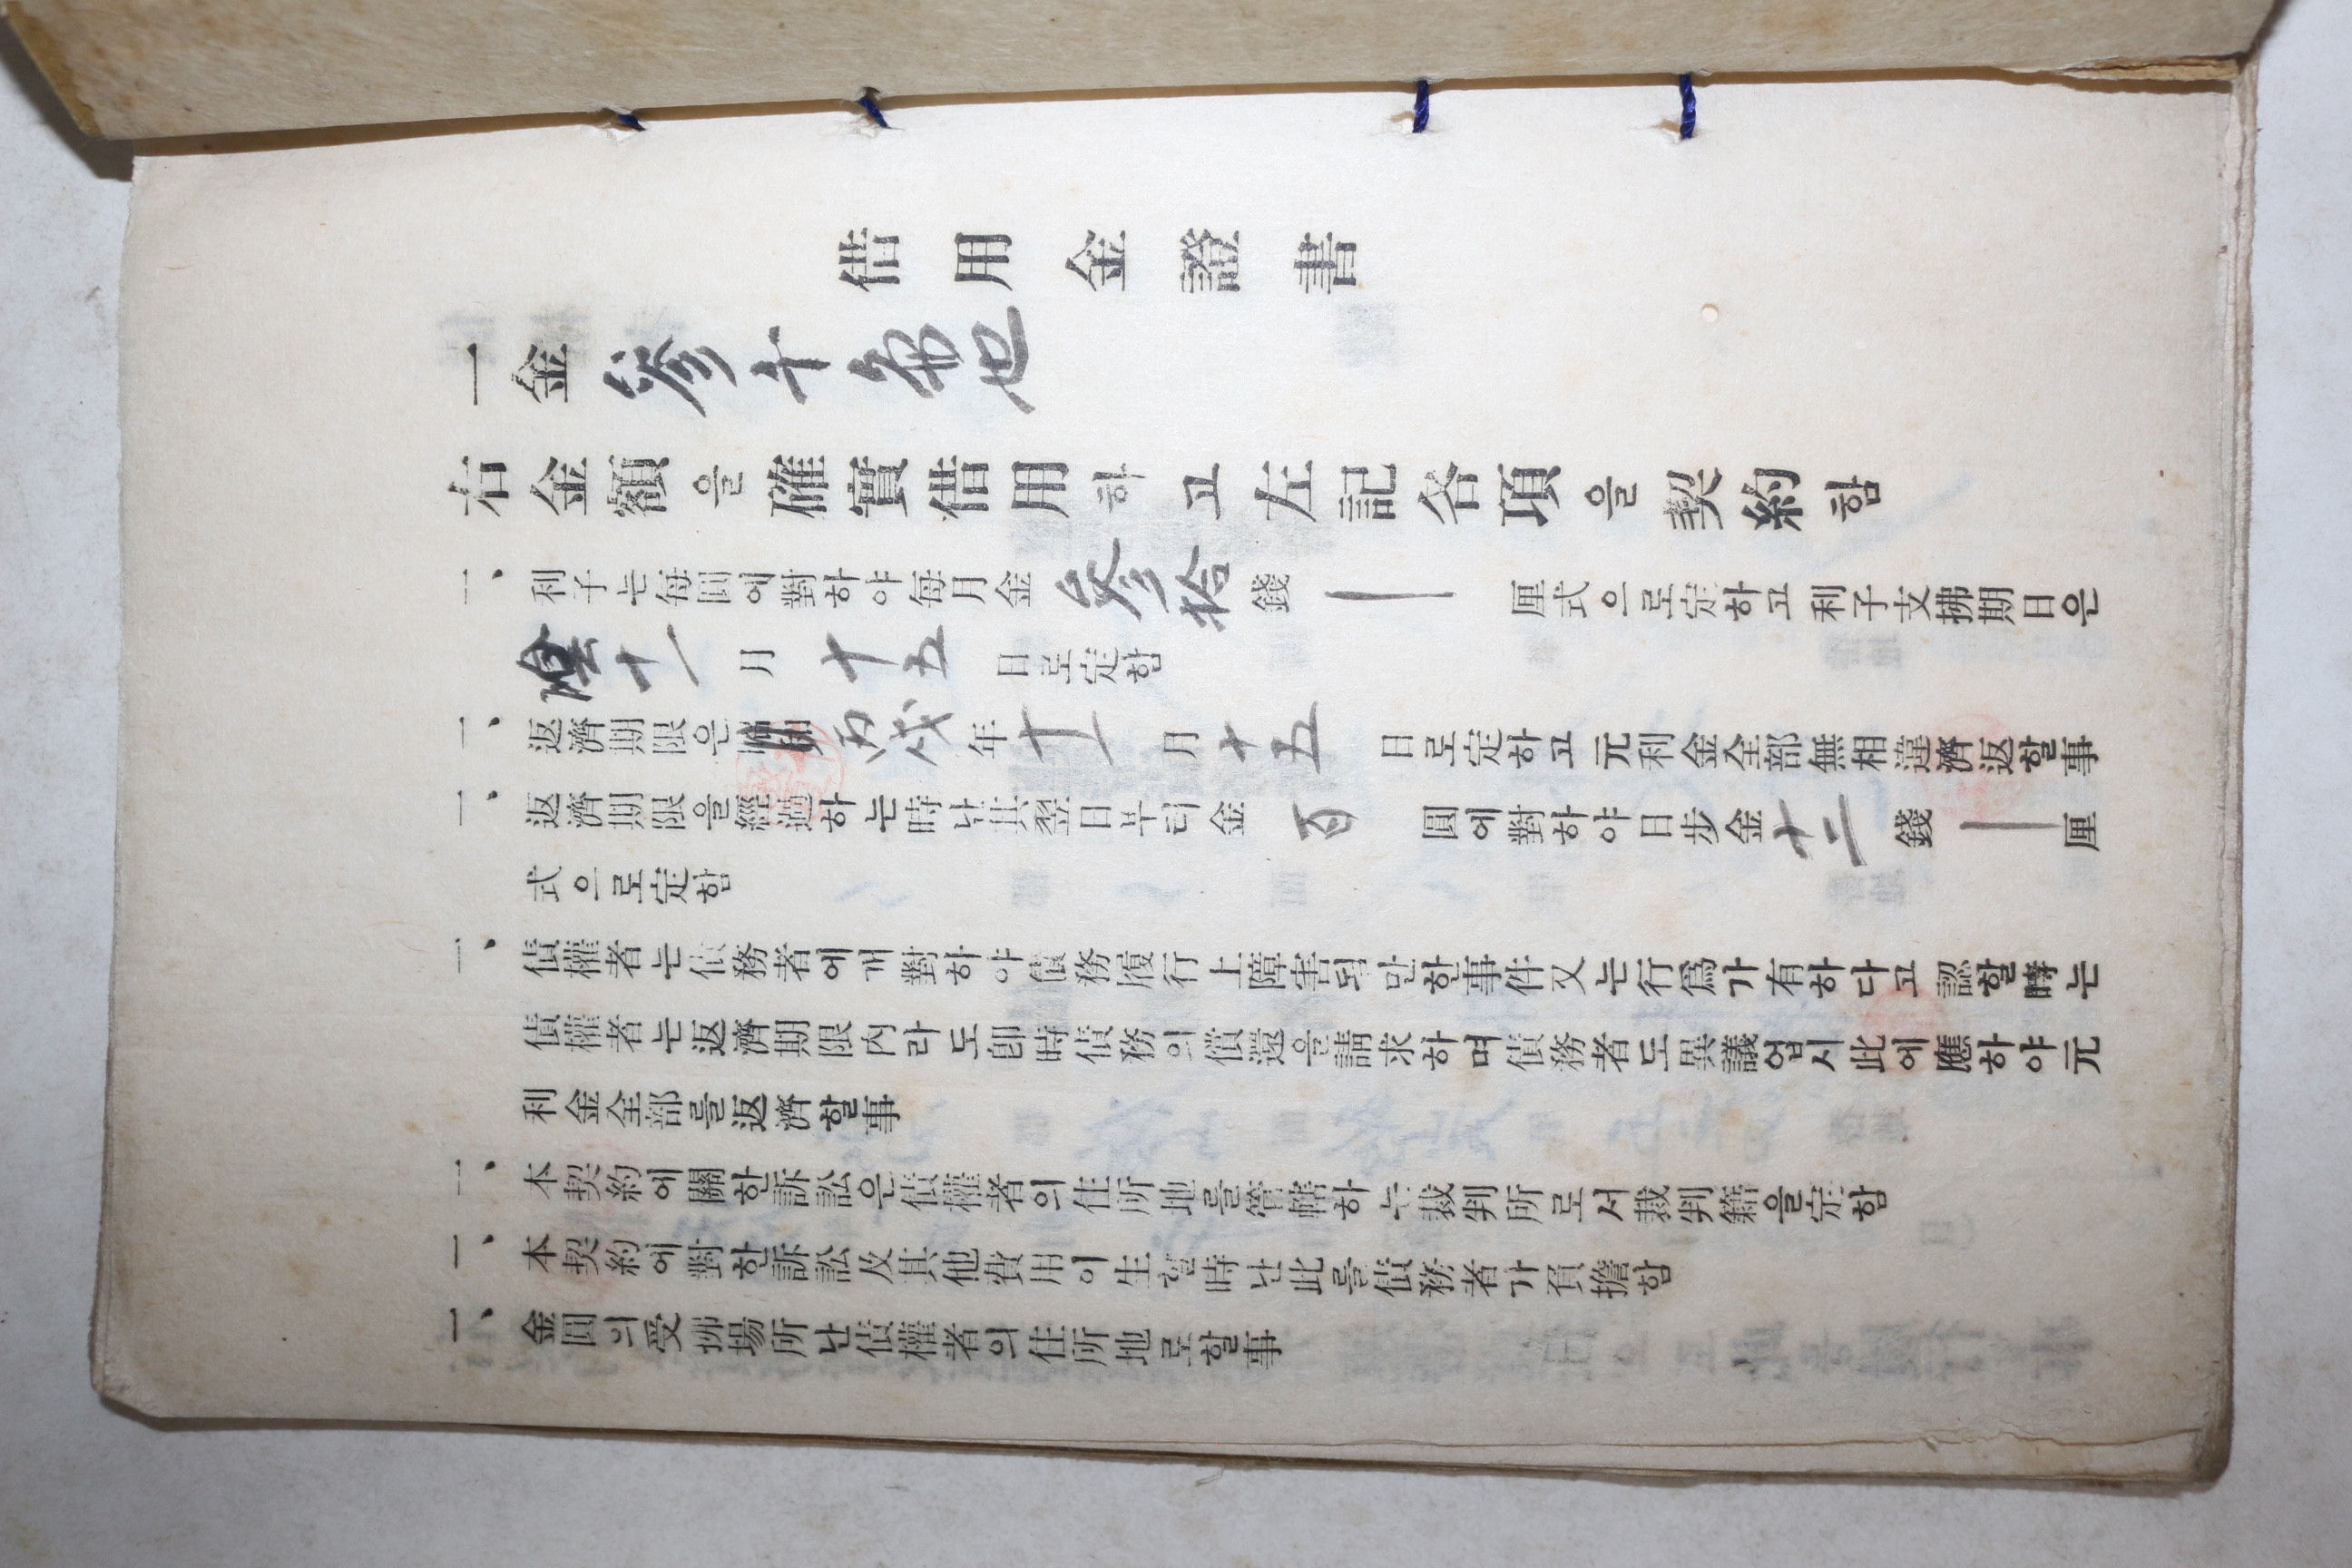 借用金證書
一金參十圓也
右金額을確實借用하고左記各項을契約함
一、利子는每圓에對하야每月金參拾錢 厘式으로定하고利子支拂期日은
陰十一月十五日로定함
一、返濟期限은 丙戌年十一月十五日로定하고元利金全部無相違濟返할事
一、返濟期限을經過하는時난其翌日부터金百圓에對하야日步金十二錢 厘
式으로定함
一、債權者는債務者에개對하야債務履行上障害되만한事件又는行爲가有하다고認할時는
債權者는返濟期限內라도卽時債務의償還을請求하며債務者도異議업시此에應하야元
利金全部를返濟할事
一、本契約에關한訴訟은債權者의住所地를管轄하는裁判所로서裁判籍을定함
一、本契約에對한訴訟及其他費用이生할時난此를債務者가負擔함
一、金圓의受拂場所난債權者의住所地로할事